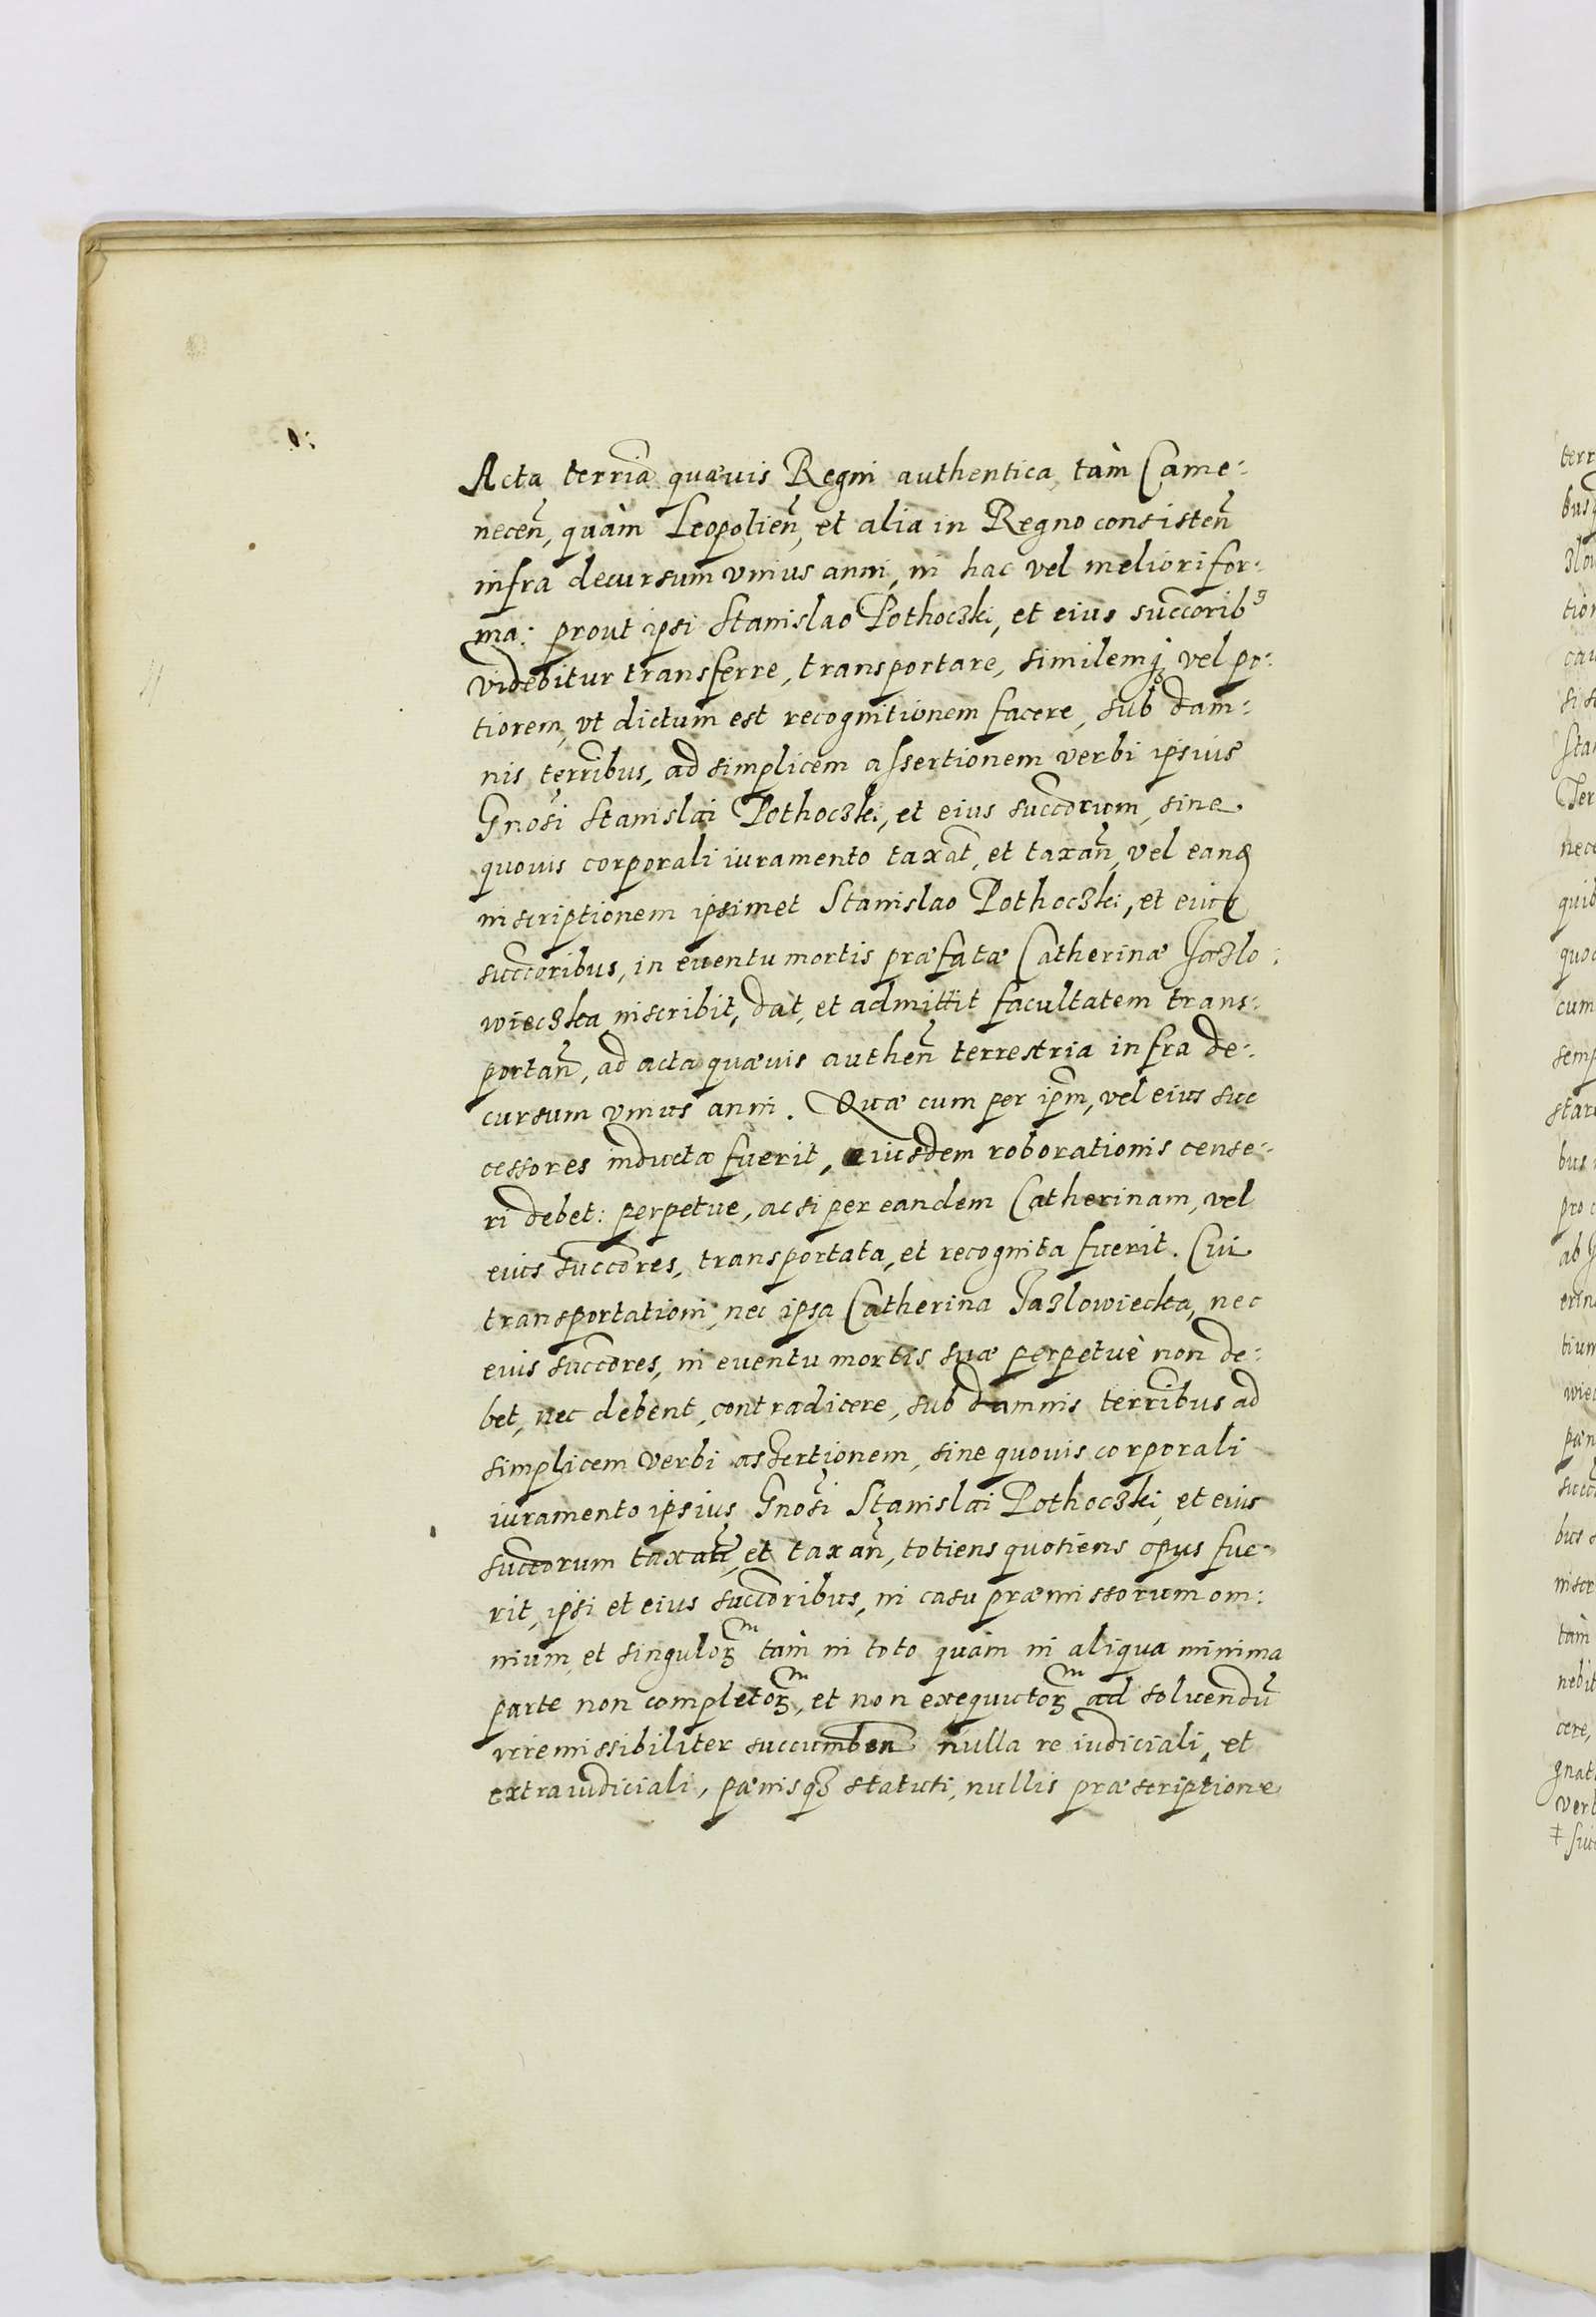 Acta terria quævis Regni authentica, tàm Came:
neceñ, quàm Leopolieñ, et alia in Regno consisteñ
infra decursum vnius anni, in hac vel meliori for:
ma: prout ipsi Stanislao Pothoczki, et eius succorib9
videbitur transferre, transportare, similemq3 vel po:
tiorem, vt dictum est recognitionem facere, sub dam:
nis terribus, ad simplicem assertionem verbi ipsius
Gnosi Stanislai Pothoczki, et eius succorum, sine
quovis corporali iuramento taxat, et taxañ, vel eand
inscriptionem ipsimet Stanislao Pothoczki, et eius
succoribus, in euentu mortis præfatæ Catherinæ Jazlo:
wieczka inscribit, dat, et admittit facultatem trans:
portañ, ad acta quævis autheñ terrestria infra de:
cursum vnius anni. Quæ cum per ipm, vel eius suc
cessores inducta fuerit, eiusdem roborationis cense:
ri debet: perpetue, ac si per eandem Catherinam, vel
eius succores, transportata, et recognita fuerit. Cui
transportationi, nec ipsa Catherina Jazlowiecka, nec
eius succores, in euentu mortis suæ perpetuè non de:
bet, nec debent, contradicere, sub damnis terribus ad
simplicem verbi assertionem, sine quovis corporali
iuramento ipsius Gnosi Stanislai Pothoczki, et eius
succorum taxat, et taxañ, totiens quotiens opus fue:
rit, ipsi et eius succoribus, in casu præmissorum om:
nium, et singulorum tàm in toto quàm in aliqua minima
parte non completorum, et non exequutorum ad soluendū
irremissibiliter succumben nulla re iudiciali, et
extraiudiciali, pænisq3 statuti, nullis præscriptione